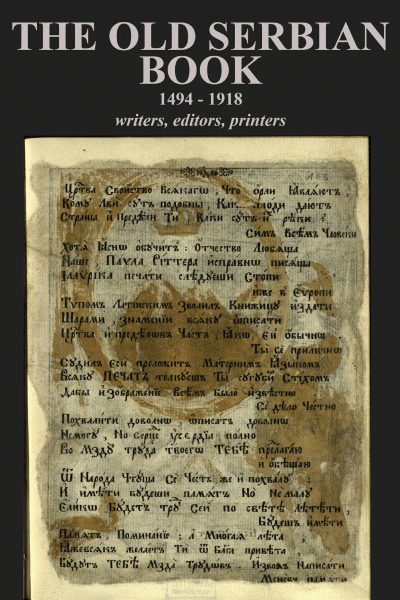 THE OLD SERBIAN
BOOK
1494 - 1918
writers, editors, printers
163
Цртва Свойство Всякагѡ , Что орли Ꙗвлѧютъ ,
Кому Лви сутъ подобны , Как плоди даютъ
Страны и Предѣли Ти Каки сутъ и рѣки ?
Симъ Всѣмъ Человѣки
Хотѧ Ꙗснѡ обѹчитъ : Отчество Любѧща
Наше , Паѵла Рїттера исправнѡ писѧща
Маѵрїка печати слѣдуещи Стопи
иже въ Еѵропи
Тѵпомъ Латїнскимъ зволилъ Книжицу издати
Шарами , знаменїи всѧку ѡписати
Цртва и предѣлѡвъ Часть , Ꙗкѡ Ей обычнѡ .
Ты се приличнѡ
Судилъ Еси преложитъ Матернимъ Ꙗзыкомъ
Всѧку ПЕЧАТЪ толкуешъ Ты сугубѝ Стїхомъ
Дабы изображенїе Всѣмъ было извѣстно
Се дѣло Честно
Похвалити доволнѡ , ѡписатъ доволнѡ
Немогу , Но Серце усердїа полно
Во Мзду труда твоегѡ ТЕБѢ прелагаю
и обѣщаю
Ѿ Народа Чтуща Се Честь же и похвалу :
И имѣти будеши памѧтъ Но Немалу
Еликѡ Будетъ тру Сей по свѣтѣ Лѣтѣти ,
Будешъ имѣти
Памѧтъ , Поминанїе : а Многаѧ лѣта
Ꙗжевсѧкъ желаетъ Ти ѿ Бга привѣта ,
Будутъ ТЕБѢ Мзда Трудѡвъ . Изволь Написати